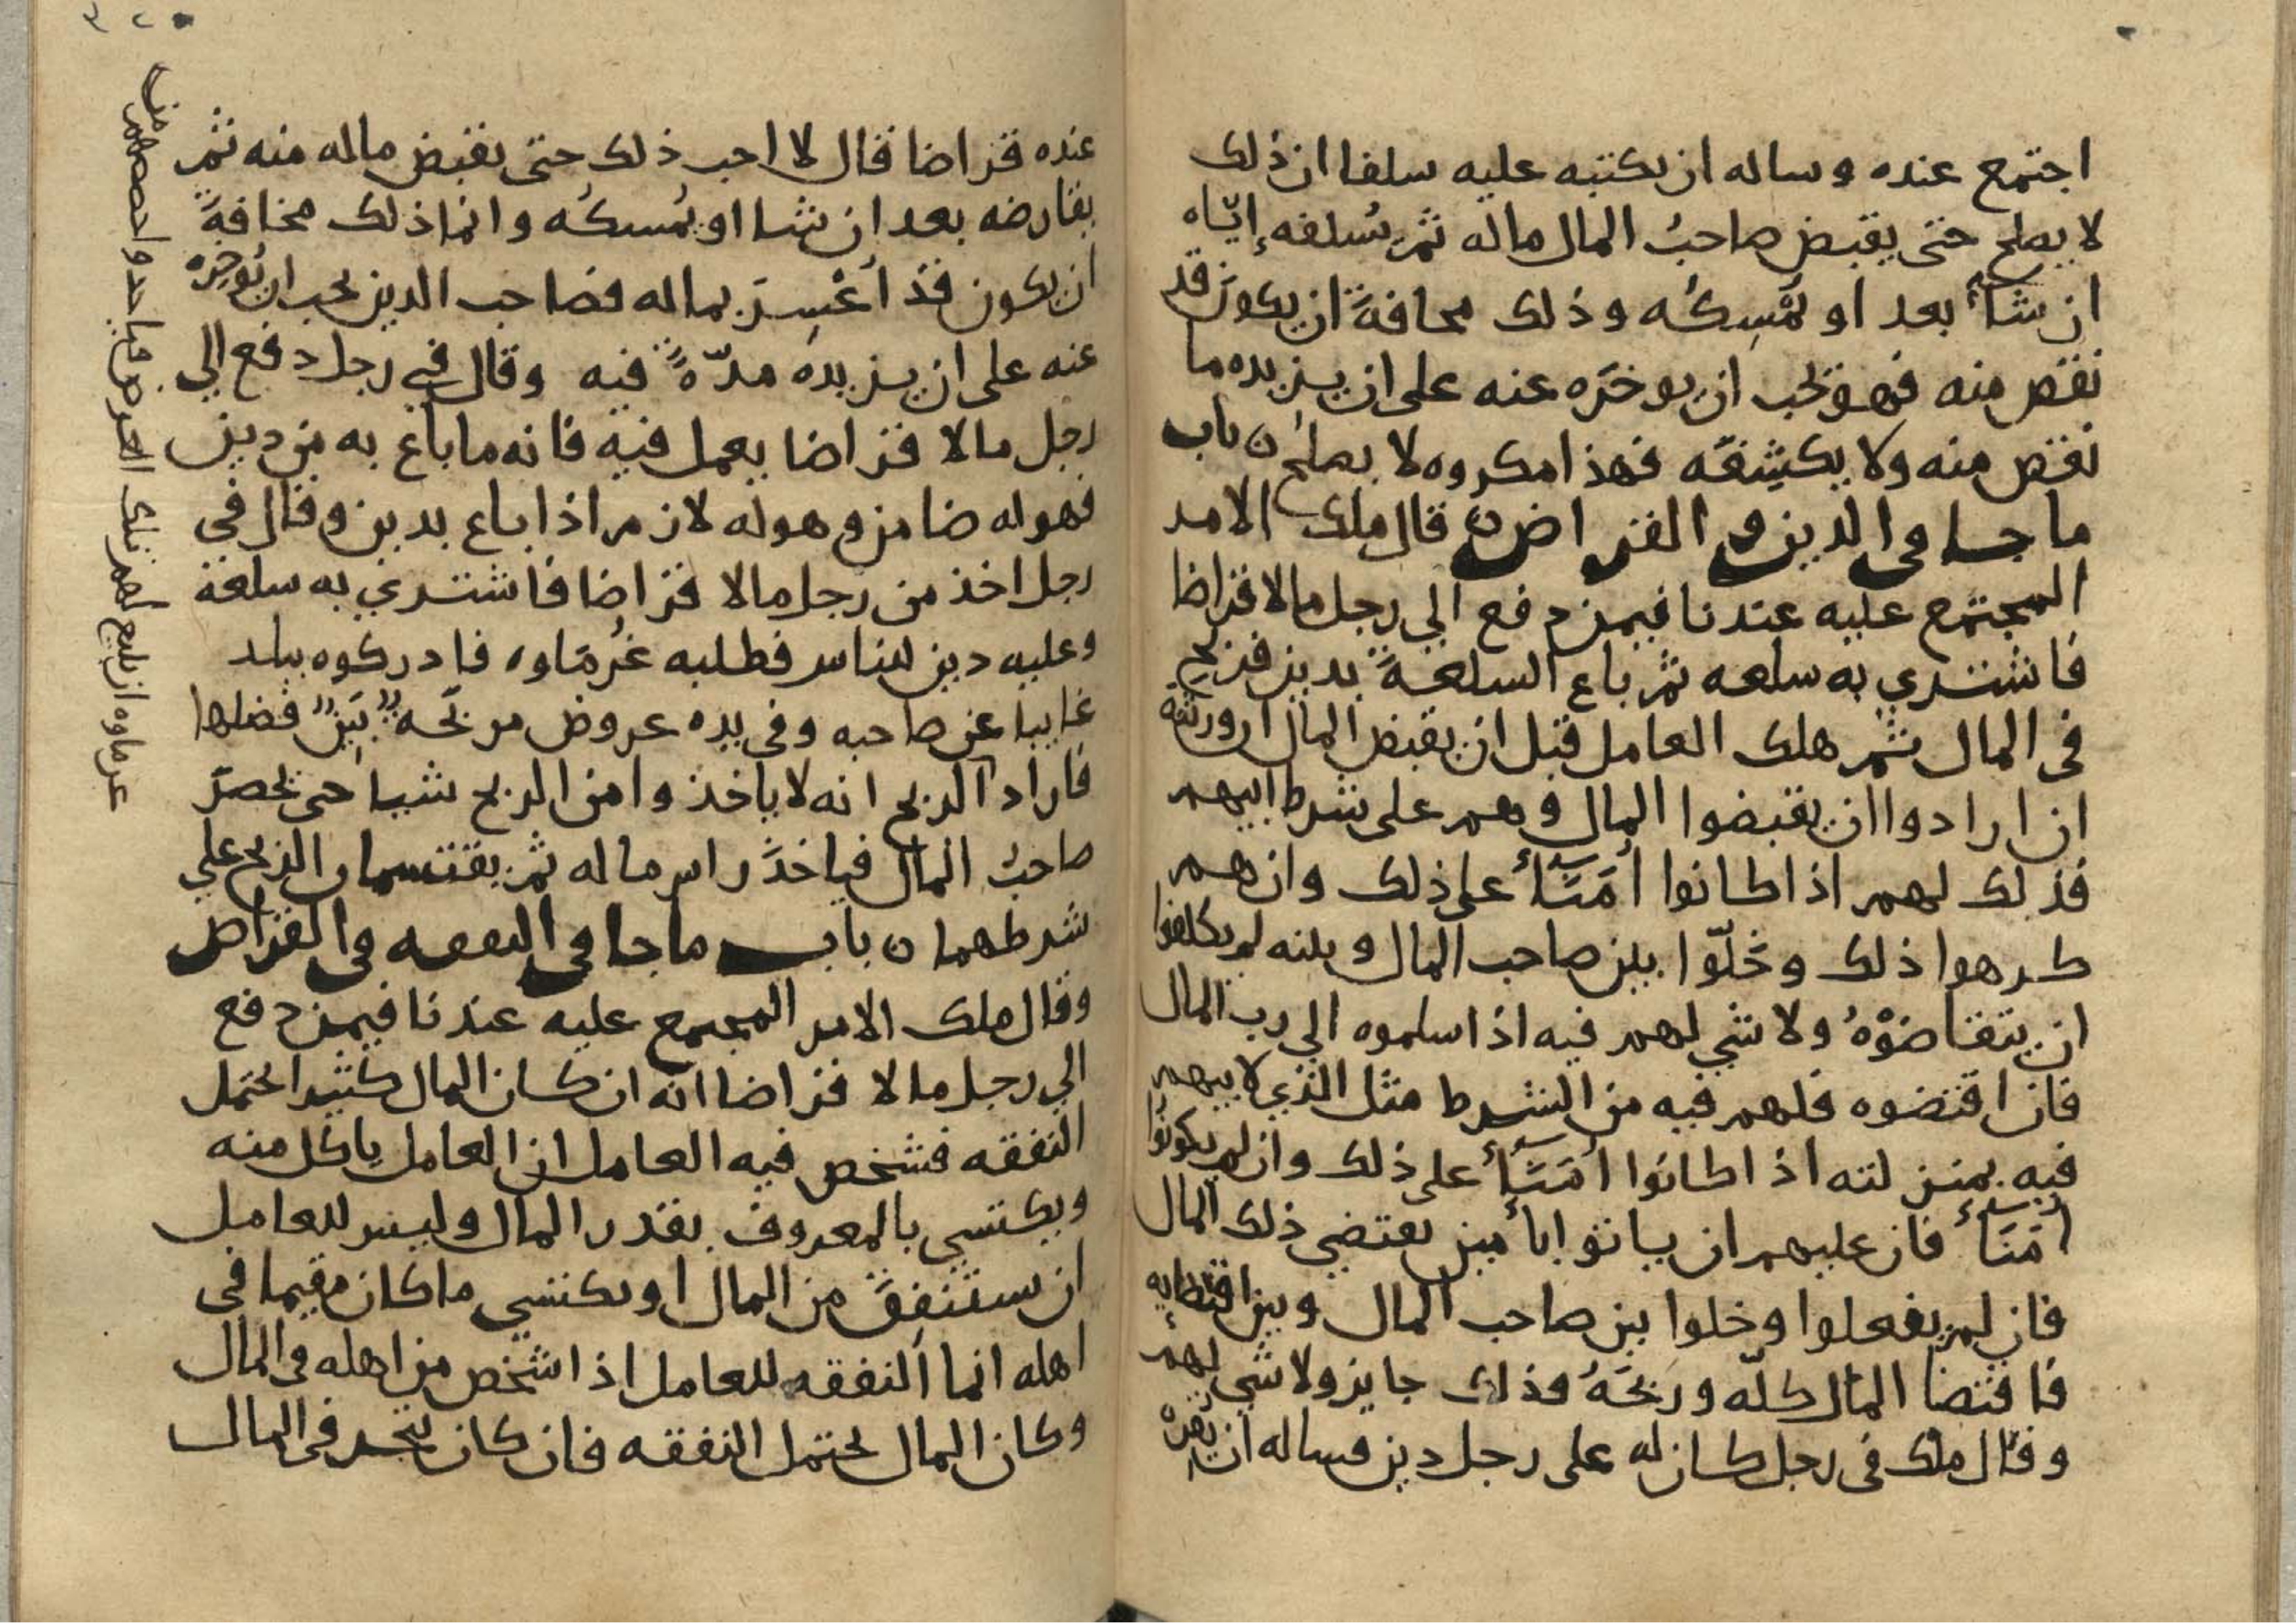 اجتمع عنده وساله ان يكتبه عليه سلفا ان ذلك
لا يصلح حتى يقبض صاحبُ المال ماله ثم يُسلفه إيّاه
ان شاء بعد او يُمْسِكُه وذلك مخافةَ ان يكونَ قد
نقص منه فهو يحب ان يوخرَه عنه على ان يزيده ما
نقص منه ولا يكشِفَه فهذا مكروه لا يصلح ن باب
ما جا في الدين في القراض ن قال ملك الامر
المجتمع عليه عندنا فيمن دفع الي رجل مالا قراضا
فاشتري به سلعه ثم باع السلعةَ بدين فربح
في المال ثم هلك العامل قبل ان يقبض المال ان ورثته
ان ارادوا ان يقبضوا المال وهم على شرط ابيهم
فذلك لهم اذا كانوا اُمَنَآءَ على ذلك وان هم
كرهوا ذلك وخَلّوا بين صاحب المال وبينه لم يكلفوا
ان يتقاضَوْهُ ولا شي لهم فيه اذا اسلموه الي رب المال
فان اقتضوه فلهم فيه من الشرط مثل الذي لابيهم
فيه بمنزلته اذا كانوا اُمَنَآءَ على ذلك وان لم يكونُوا
اُمَنَآءَ فان عليهم ان ياتوا بأمين يقتضي ذلك المال
فان لم يفعلوا وخلوا بين صاحب المال وبين اقتضايه
فاقتضا المال كلّه وربحَهُ فذلك جايز ولا شي لهم
وقال ملك في رجل كان له على رجل دين فساله ان يُقره
عنده قراضا قال لا احب ذلك حتى يقبض ماله منه ثم
يقارضه بعد ان شا او يُمْسكُه وانما ذلك مخافةَ
ان يكون قد أعْسِرَ بماله فصاحب الدين يحب ان يُوخِره
عنه على ان يزيدهُ مدّةً فيه وقال في رجل دفع الي
رجل مالا قراضا يعمل فيه فانه ما باع به من دين
فهو له ضامن وهو له لازم اذا باع بدين وقال في
رجل اخذ من رجل مالا قراضا فاشتري به سلعة
وعليه دين للناس فطلبه غُرمَاوه فادركوه ببلد
غايبا عن صاحبه وفي يده عروض مربحَه بَيِّن فضلها
فاراد الربح انه لا ياخذوا من الربح شيا حتى يحضرَ
صاحبُ المال فياخذَ راس ماله ثم يقتسمان الربح علي
شرطهما ن باب ما جا في النفقه في القراض
وقال ملك الامر المجتمع عليه عندنا فيمن دفع
الي رجل مالا قراضا انّه ان كان المال كثيرا يحتمل
النفقه فشخص فيه العامل ان العامل ياكل منه
ويكتسي بالمعروف بقدر المال وليس للعامل
ان يستنفِقَ من المال او يكتسي ما كان مقيما في
اهله انما النفقه للعامل اذا شخص من اهله في المال
وكان المال يحتمل النفقه فان كان يتجر في المال
غرماوه ان يباع لهم تلك العروض فياخذوا حصصهم من